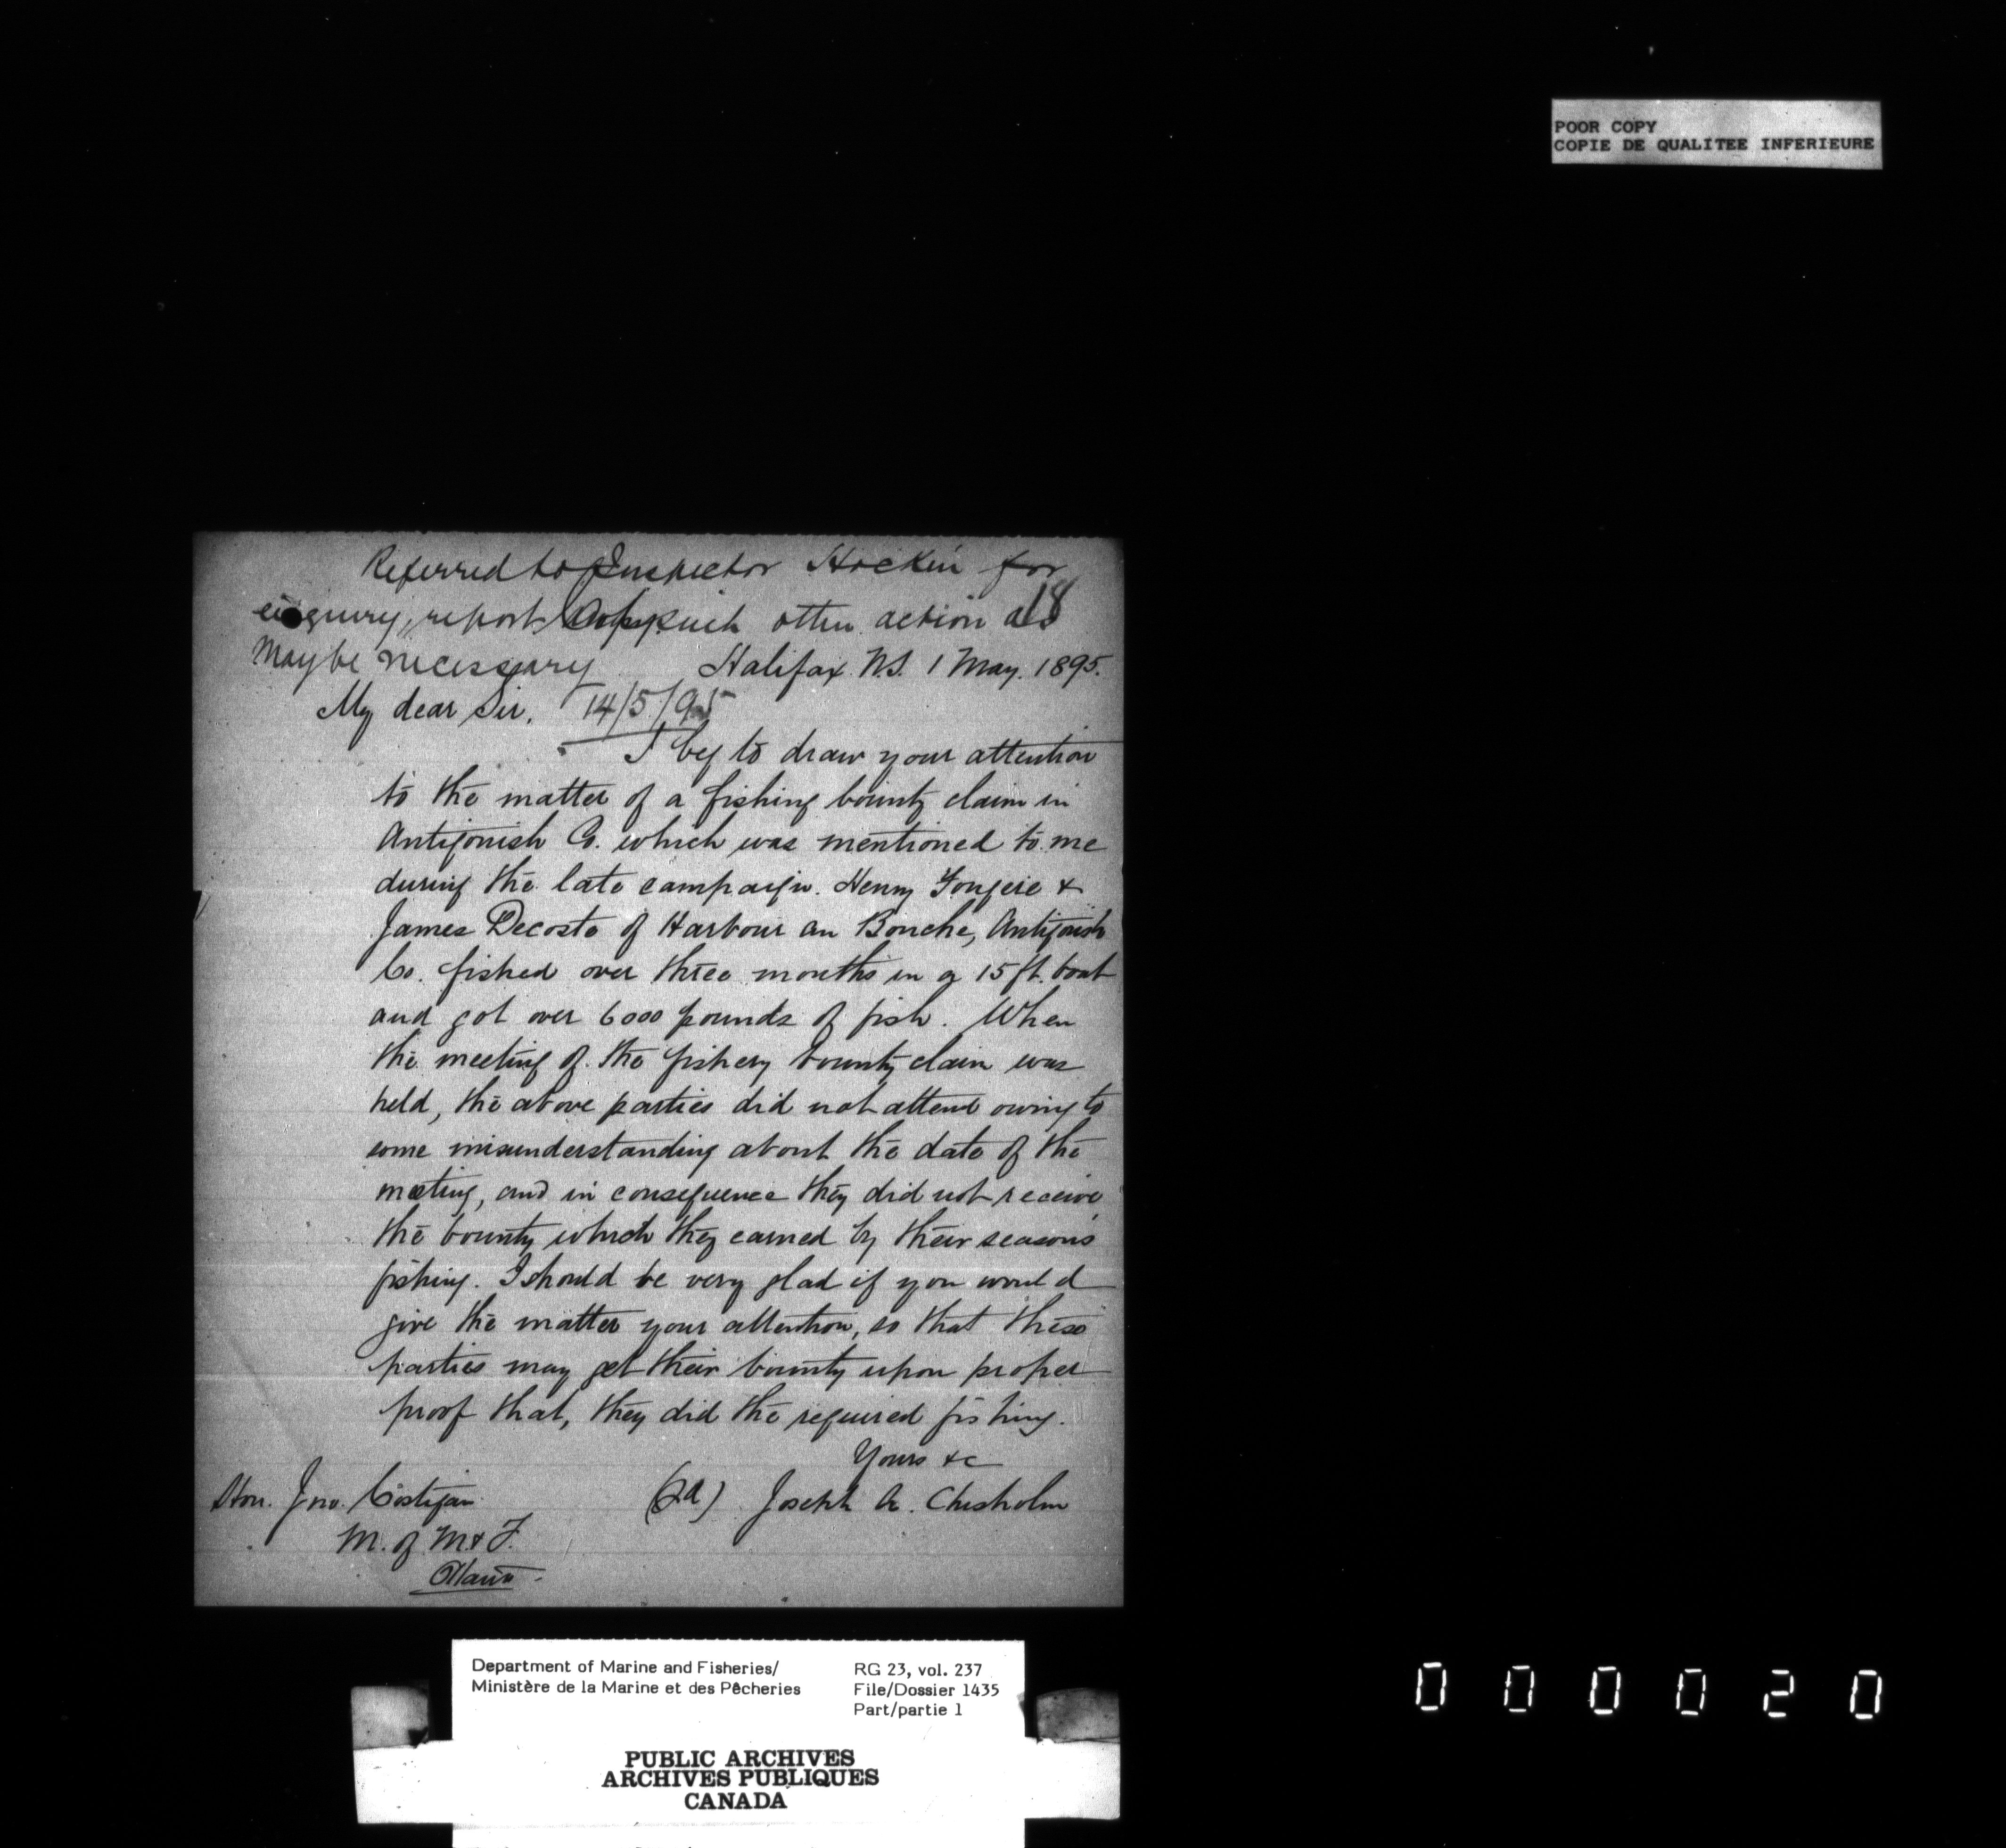 POOR COPY
COPIE DE QUALITEE INFERIEURE
Referred to Inspector Hockin for
enquiry, report & such other action as
18
may be necessary
Halifax N.S. 1 May. 1895.
Copy
My dear Sir,
14/5/95
I beg to draw your attention
to the matter of a fishing bounty claim in
Antigonish Co. which was mentioned to me
during the late campaign. Henry Fougere &
James Decoste of Harbour au Bouche, Antigonish
Co. fished over three months in a 15 ft. boat
and got over 6000 pounds of fish. When
the meeting of the fishery bounty claim was
held, the above parties did not attend owing to
some misunderstanding about the date of the
meeting, and in consequence they did not receive
the bounty which they earned by their seasons
fishing. I should be very glad if you would
give the matter your attention, so that these
parties may get their bounty upon proper
proof that, they did the required fishing.
Yours &c
(sd) Joseph A. Chisholm
Hon. Jno. Costigan
M. of M. & F.
Ottawa.
Department of Marine and Fisheries/
Ministère de la Marine et des Pêcheries
RG 23, vol. 237
File/Dossier 1435
Part/partie 1
PUBLIC ARCHIVES
ARCHIVES PUBLIQUES
CANADA
000020